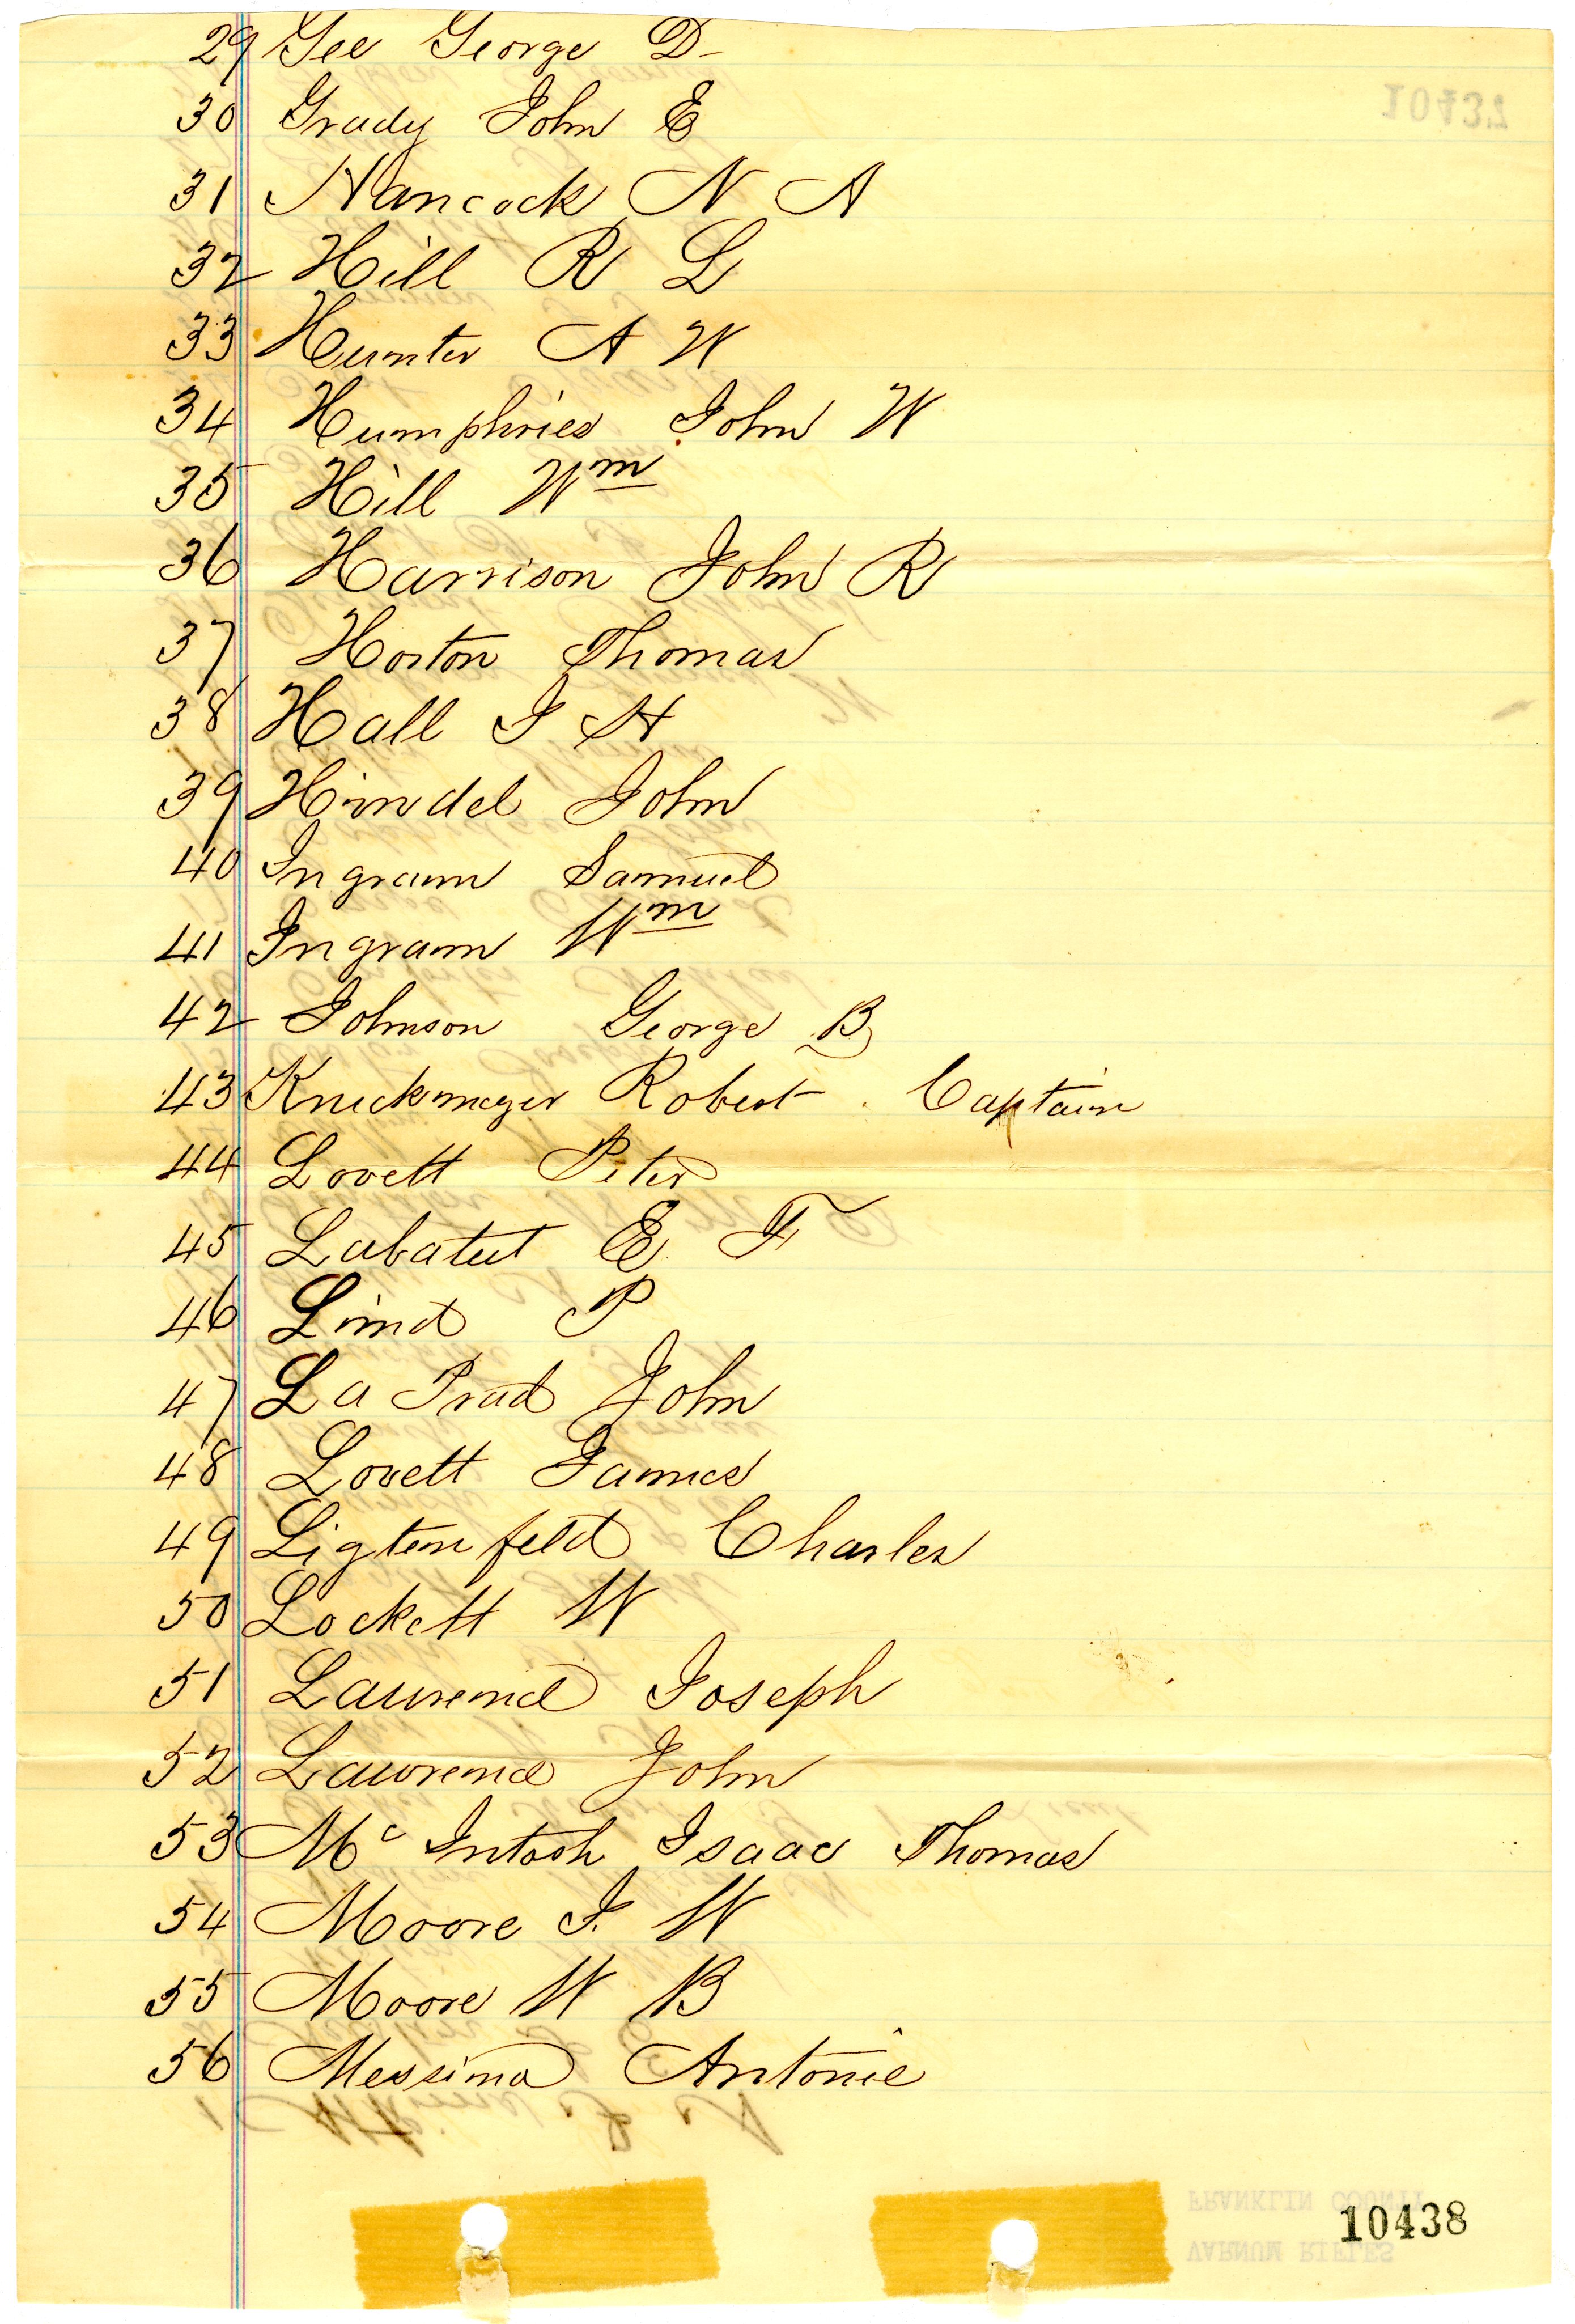 29 Gee George D
10437
30 Grady John E
31 Hancock N A
32 Hill R L
33 Hunter A W
34 Humphries John W
35 Hill Wm
36 Harrison John R
37 Horton Thomas
38 Hall J H
39 Hindel John
40 Ingram Samuel
41 Ingram Wm
42 Johnson George B
43 Knickmeyer Robert Captain
44 Lovett Peter
45 Labatut E F
46 Lind P
47 La Prad John
48 Lovett James
49 Ligtenfeld Charles
50 Lockett W
51 Laurend Joseph
52 Lawrend John
53 Mc Intosh Isaac Thomas
54 Moore J. W
55 Moore W B
56 Messina Antonie
FRANKLIN COUNTY
10438
VARNUM RIFLES